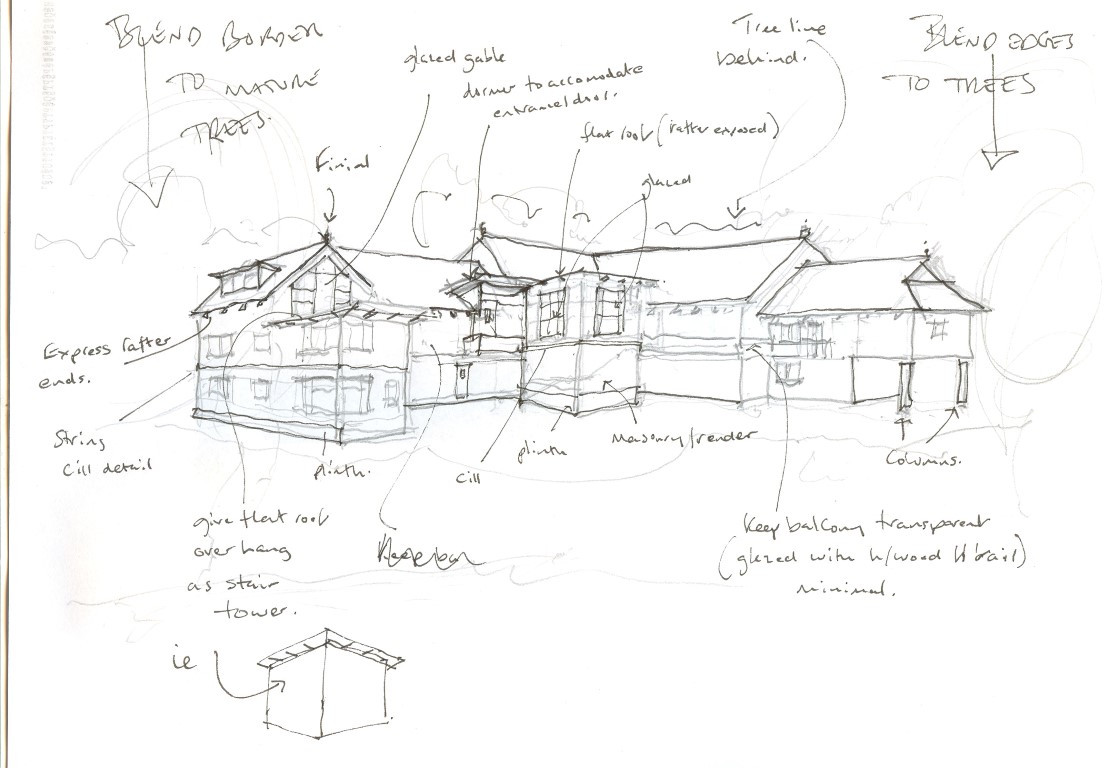 BLEND BORDER
TO MATURE
TREES.
glazed gable
dormer to accomodate
entrance/door.
Tree line
behind.
BLEND EDGES
TO TREES
flat roof (rafter exposed)
Finial
glazed
Express rafter
ends.
String
Cill detail
plinth.
Cill
plinth
Masonry/render
Columns.
give flat roof
over hang
as stair
tower.
Keep balcony transparent
(glazed with h/wood H'brail)
minimal.
ie